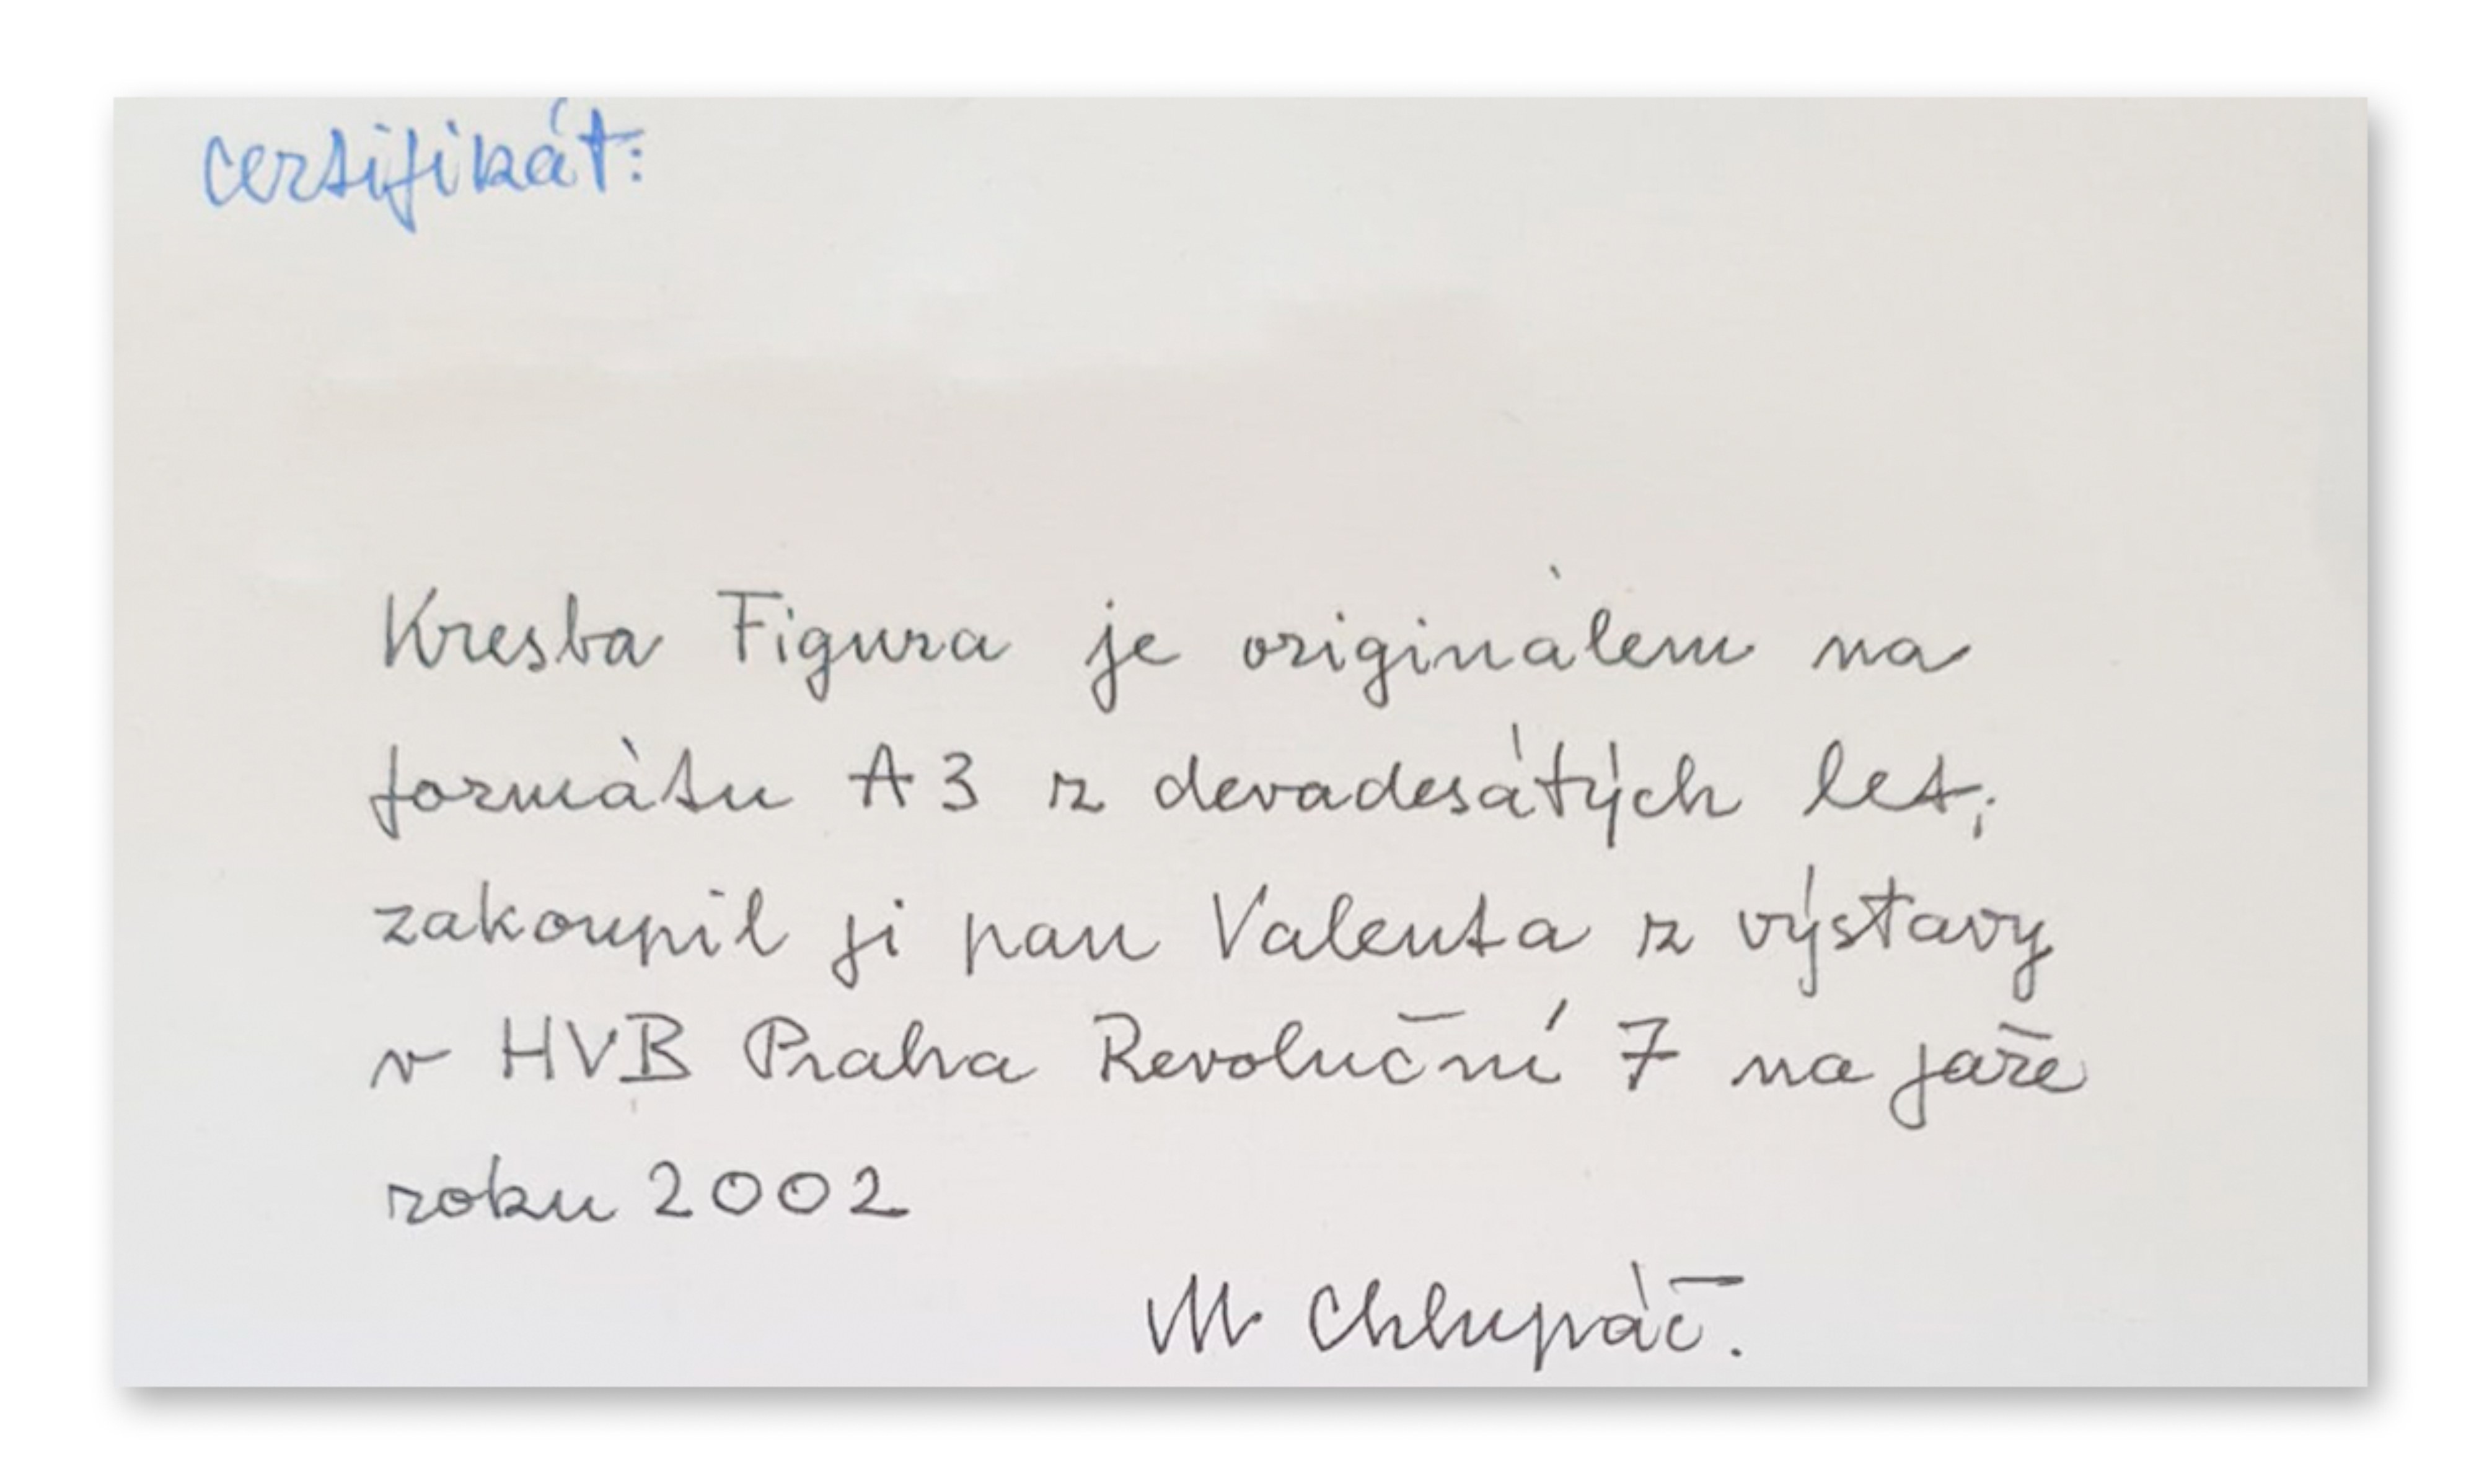 certifikát:
Kresba Figura je originálem na
formátu A3 z devadesátých let,
zakoupil ji pan Valenta z výstavy
v HVB Praha Revoluční 7 na jaře
roku 2002
M Chlupáč.